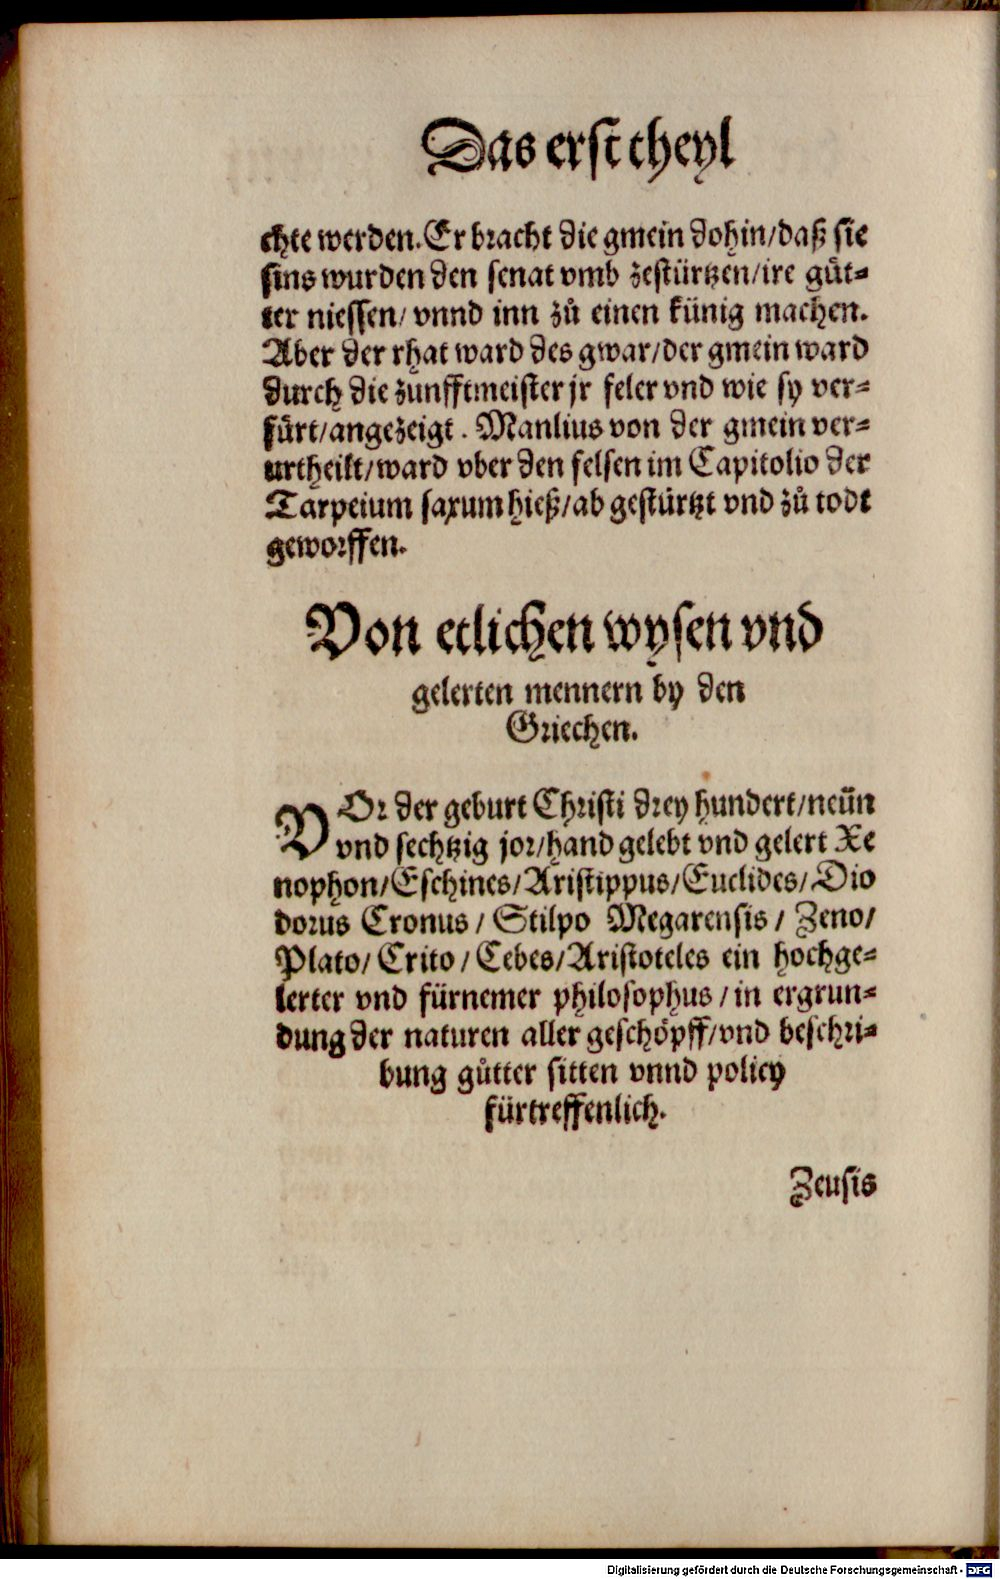 Das erst theyl
chte werden. Er bracht die gmein dohin/daß sie
sins wurden den senat vmb zestürtzen/ire güt⸗
ter niessen/ vnnd inn zů einen künig machen.
Aber der rhat ward des gwar/der gmein ward
durch die zunfftmeister jr feler vnd wie sy ver⸗
fürt/angezeigt. Manlius von der gmein ver⸗
urtheilt/ward vber den felsen im Capitolio der
Tarpeium saxum hieß/ab gestürtzt vnd zů todt
geworffen.
Von etlichen wysen vnd
gelerten mennern by den
Griechen.
VOr der geburt Christi drey hundert/neün
vnd sechtzig jor/hand gelebt vnd gelert Xe
nophon/Eschines/Aristippus/Euclides/Dio
dorus Cronus/ Stilpo Megarensis/ Zeno/
Plato/ Crito/ Cebes/Aristoteles ein hochge⸗
lerter vnd fürnemer philosophus/in ergrun⸗
dung der naturen aller geschöpff/vnd beschri⸗
bung gůtter sitten vnnd policy
fürtreffenlich.
Zeusis
Digitalisierung gefördert durch die Deutsche Forschungsgemeinschaft - DFG